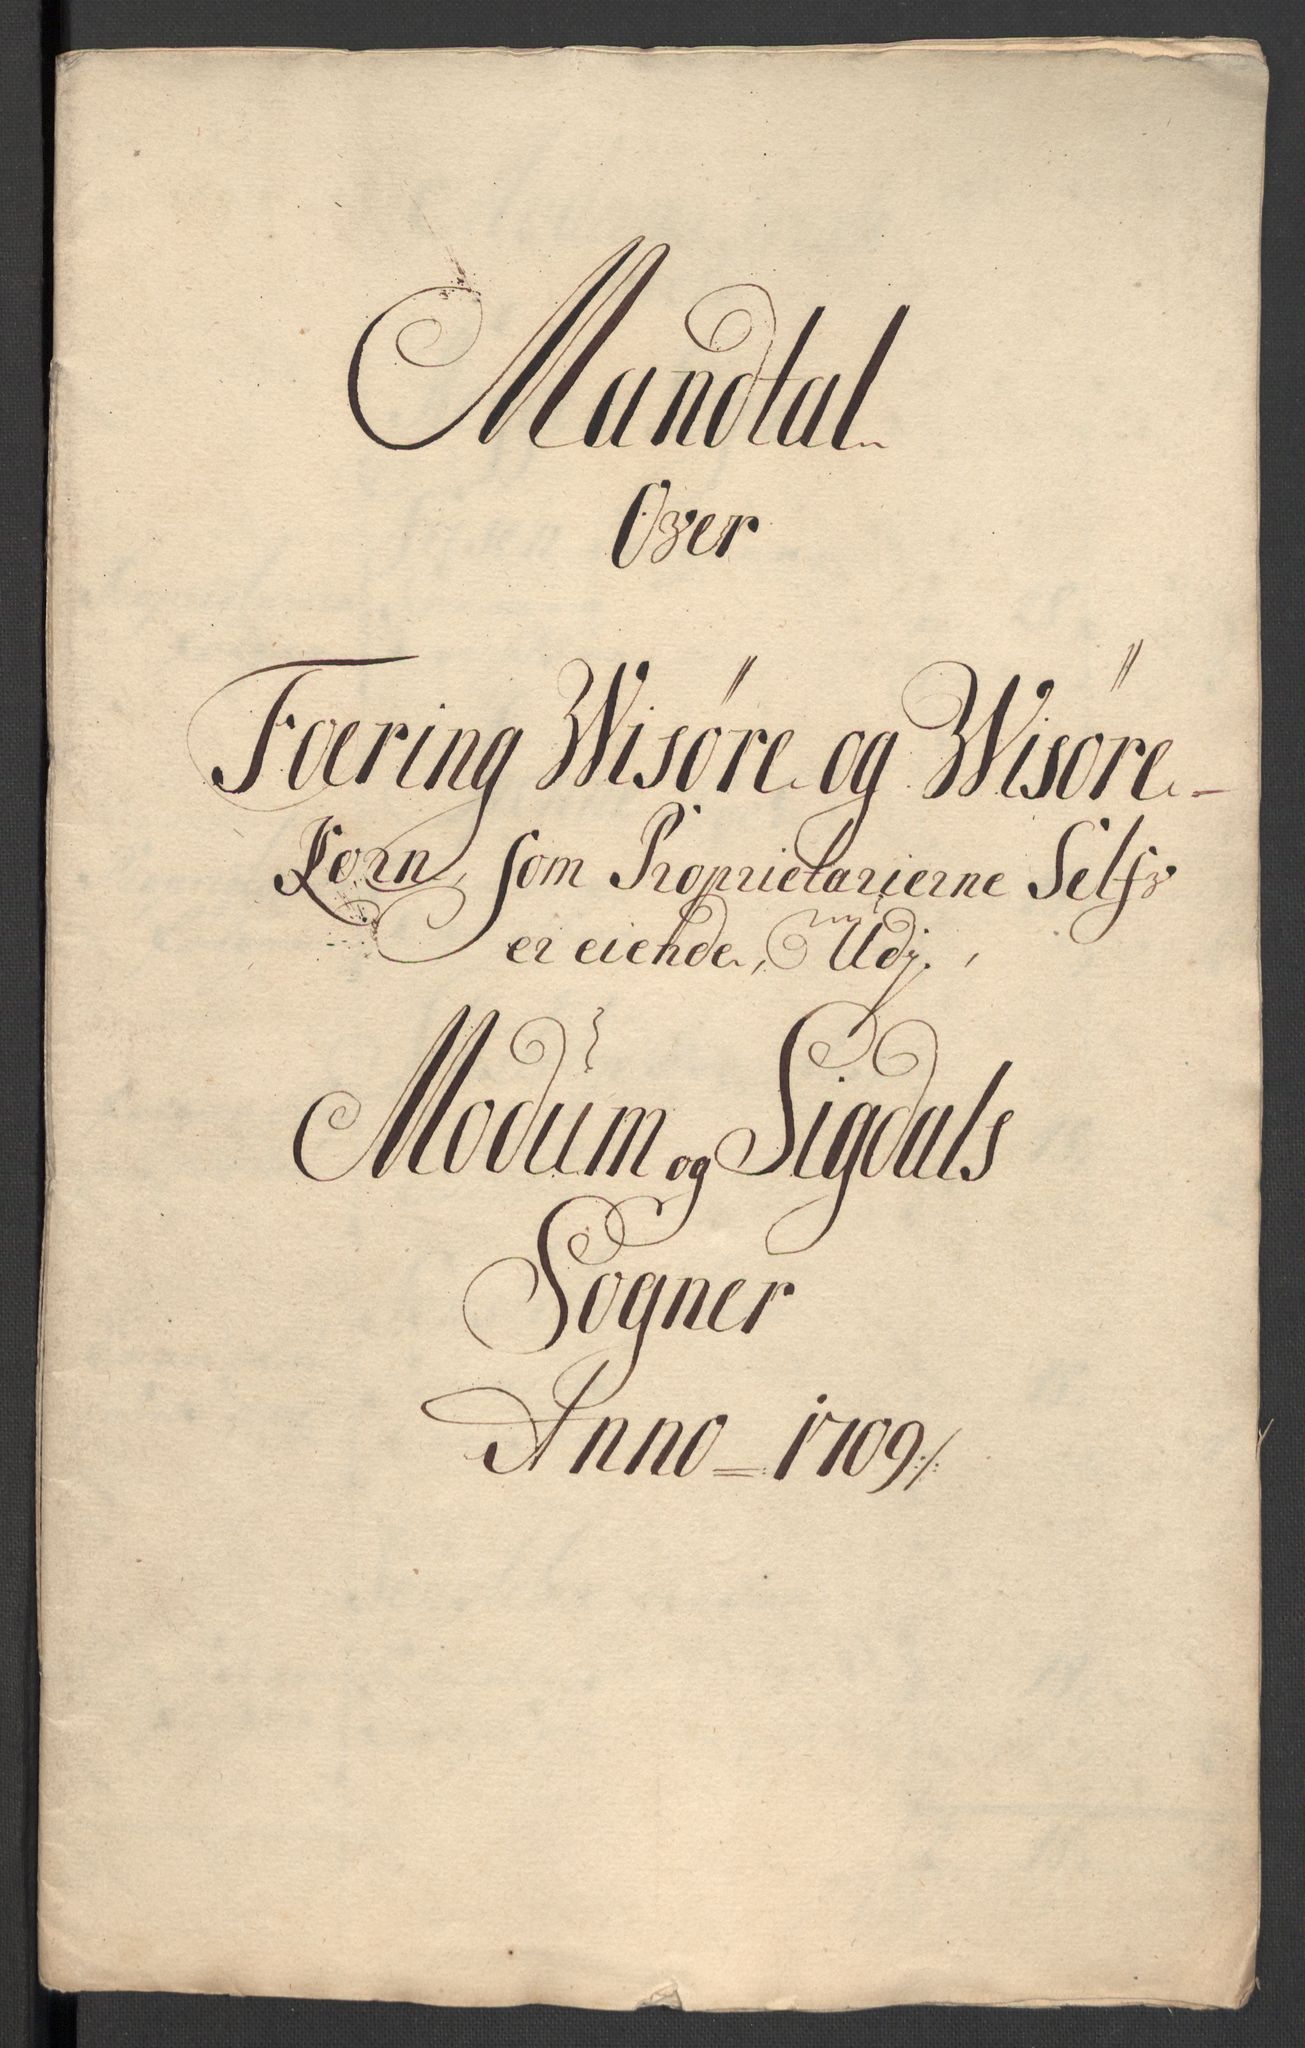 Mandtal
Over
Foering Wisøre og Wisøre-
Korn, som Proprietarierne Selfv
er eiende, Udj
Modum og Sigdals
Sogner
Anno = 1709 ./.